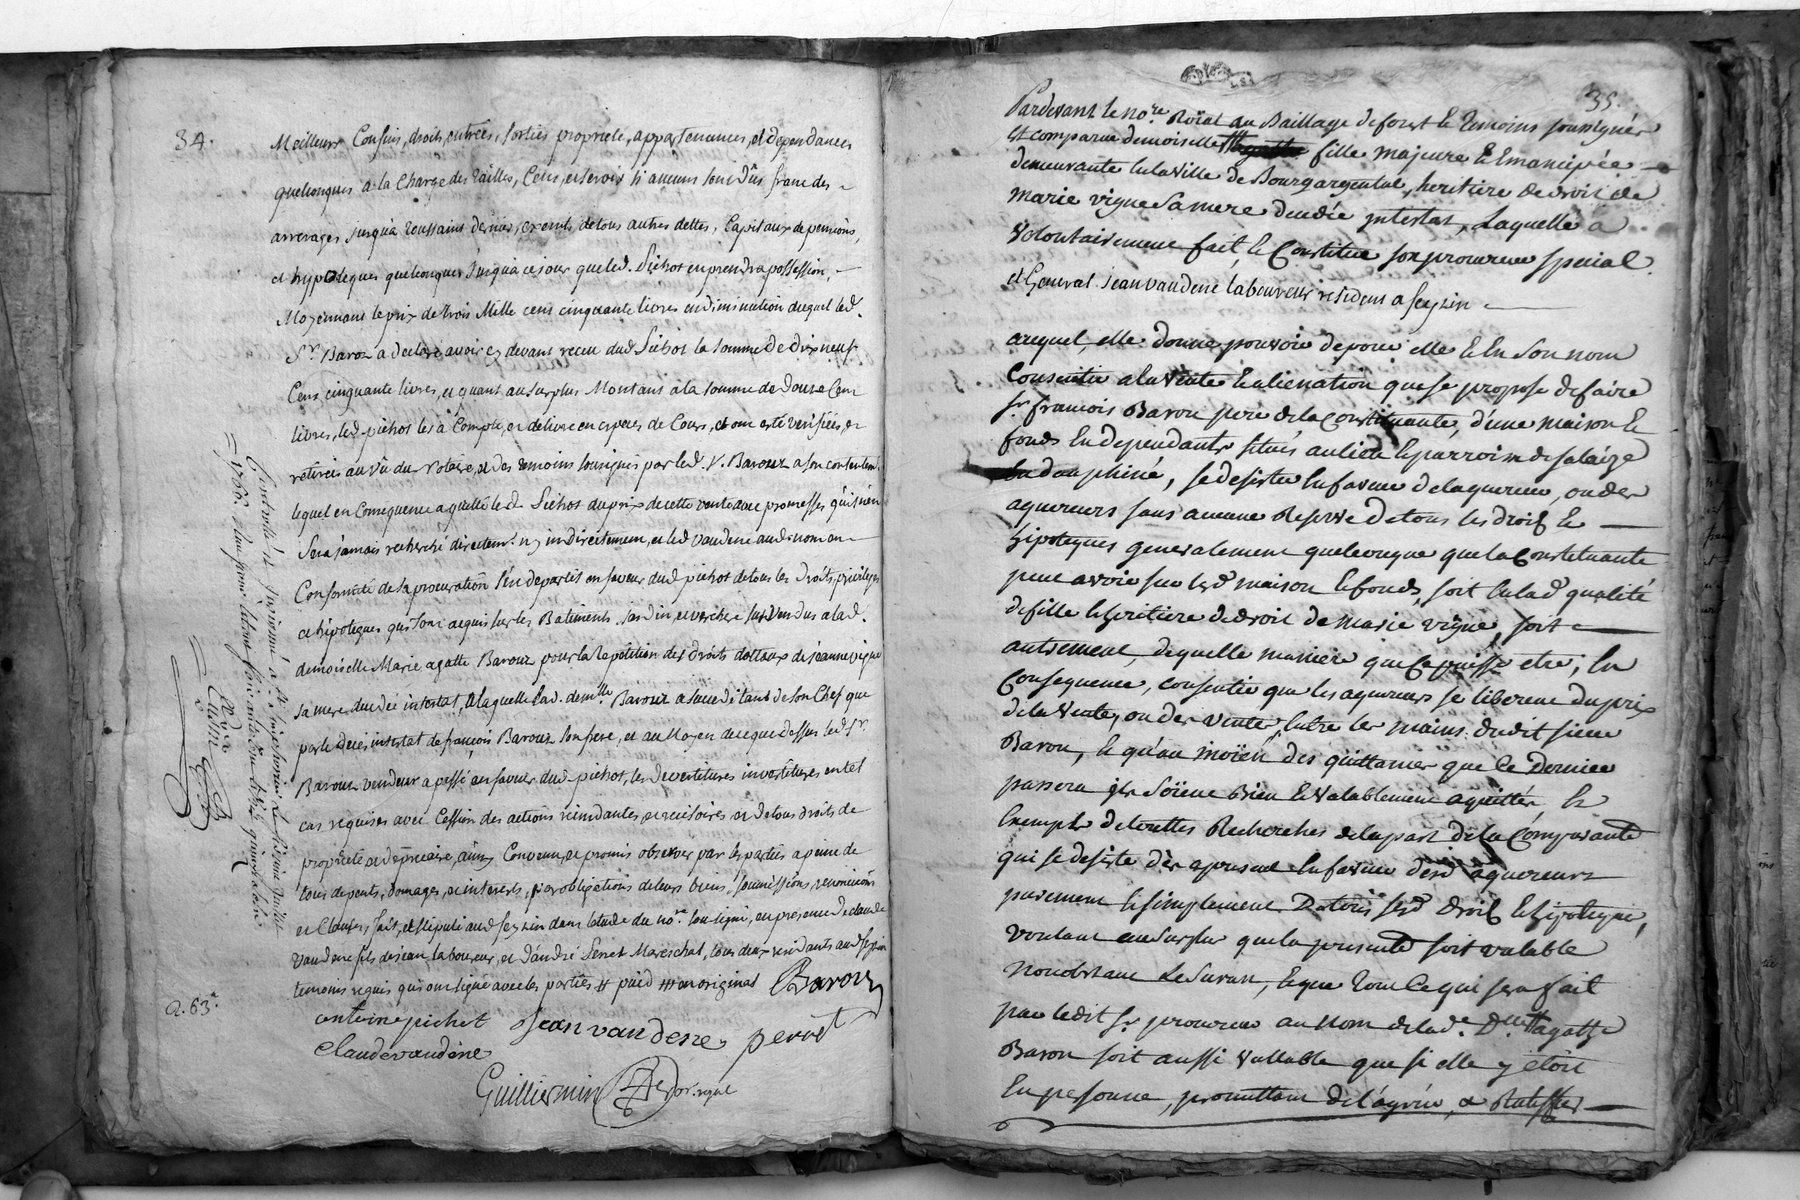 34.
Meilleurs Confins, droits, entrées, sorties propriete, appartenances, et dependances
quelconques a la Charge des tailles, Cens, et servis si aucuns sont dûs franc des
arrerages jusqu'a toussaints dernier, et de tous autres dettes, Capitaux de pensions,
et hypoteques quelconques jusqu'a ce jour que led. Pichot en prendra possession,
Moyennant le prix de trois Mille cent cinquante livres en diminution duquel led.
Sr. Barou a declaré avoir cy devant receu dud. Pichot la somme de dix neuf
Cens cinquante livres, et quant au surplus Montant à la somme de douze Cent
livres, led. pichot les à Compté, et delivré en especes de Cours, et ont esté verifiées, et
retirées au vû du Notaire, et des temoins sousignés par led. Sr. Barouz a son contentemt.
lequel en Consequence a quitté led. Pichot du prix de cette vente avec promesses qu'il n'en
sera jamais recherché directemt. ny indirectement, et led. vaudene aud. nom en
Conformité de sa procuration s'en departis en faveur dud. pichot de tous les droits, privileges
et hipoteques qui sont acquis sur les Batiments, jardin, et verchere susvendus a lad.
demoiselle Marie agatte Barouz pour la Repétition des droits dottaux de jeanne vigne
sa mere decedée intestat, a laquelle lad. demlle. Barouz a succedé tant de son Chef que
par le deces intestat de françois Barouz son frere, et au Moyen de ce que dessus led. Sr.
Barouz vendeur a passé en faveur dud. pichot, les devestitures investitures en tel
cas requises avec Cession des actions rescindantes, rescisoires et de tous droits de
proprieté et de precaire, ainsy Convenu, et promis observer par les parties a peine de
tous depents, domages, et interests, par obligations de leurs biens, soumissions renonciaons
et Clauses, fait, et stipulé aud. seyzin dans l'etude du nore. sousigné, en presence de claude
Vaudene fils de jean laboureur, et d'andré Perret Mareschal, tous deux residents aud. seyzin
temoins requis qui ont signé avec les parties au pied de l'original Barouz
antoine pichot Jean vaudene perret
claude vaudene
Guilliermin Nore. royal
a. 63.
35.
Pardevant le nore. Roïal au Baillage de forest et temoins soussignés
est comparue demoiselle fille majeure et Emancipée
demeurante en la ville de Bourgargental, heritiere de droit de
marie vigne sa mere decedée intestat, Laquelle a
volontairement fait, et Constitué son procureur special
et General jean vaudene laboureur resident a seyzin
auquel, elle donne pouvoir de pour elle et En son nom
Consentir a la vente et alienation que se propose de faire
sr. francois Barou pere de la constituante, d'une maison et
fonds En dependants situés au lieu et parroisse de salaize
En dauphiné, se desister en faveur de l'aquereur, ou des
aquereurs sans aucune Reserve de tous les droits et
hipoteques generalement quelconque que la Constituante
peut avoir sur lesd. maison et fonds, soit en lad. qualité
de fille et heritiere de droit de marie vigne, soit
autrement, de quelle maniere que ce puisse etre; En
Consequence, consentir que les aquereurs se liberent du prix
de la vente, ou des ventes, entre les mains dudit sieur
Barou, et qu'au moïen des quittances que ce Dernier
passera ils soïent bien et valablement aquittés, et
Exempts de touttes Recherches de la part de la Comparante
qui se desiste dès apresent En faveur desd. aquereurs
purement et simplement De tous sesd. droits et hipoteques,
voulant au surplus que la presente soit valable
Nonobstant le suran, et que tout ce qui sera fait
par ledit sr. procureur au nom de lade. Dlle. agathe
Barou soit aussi vallable que si elle y etoit
En personne, promettant de l'agréer, et Ratiffier